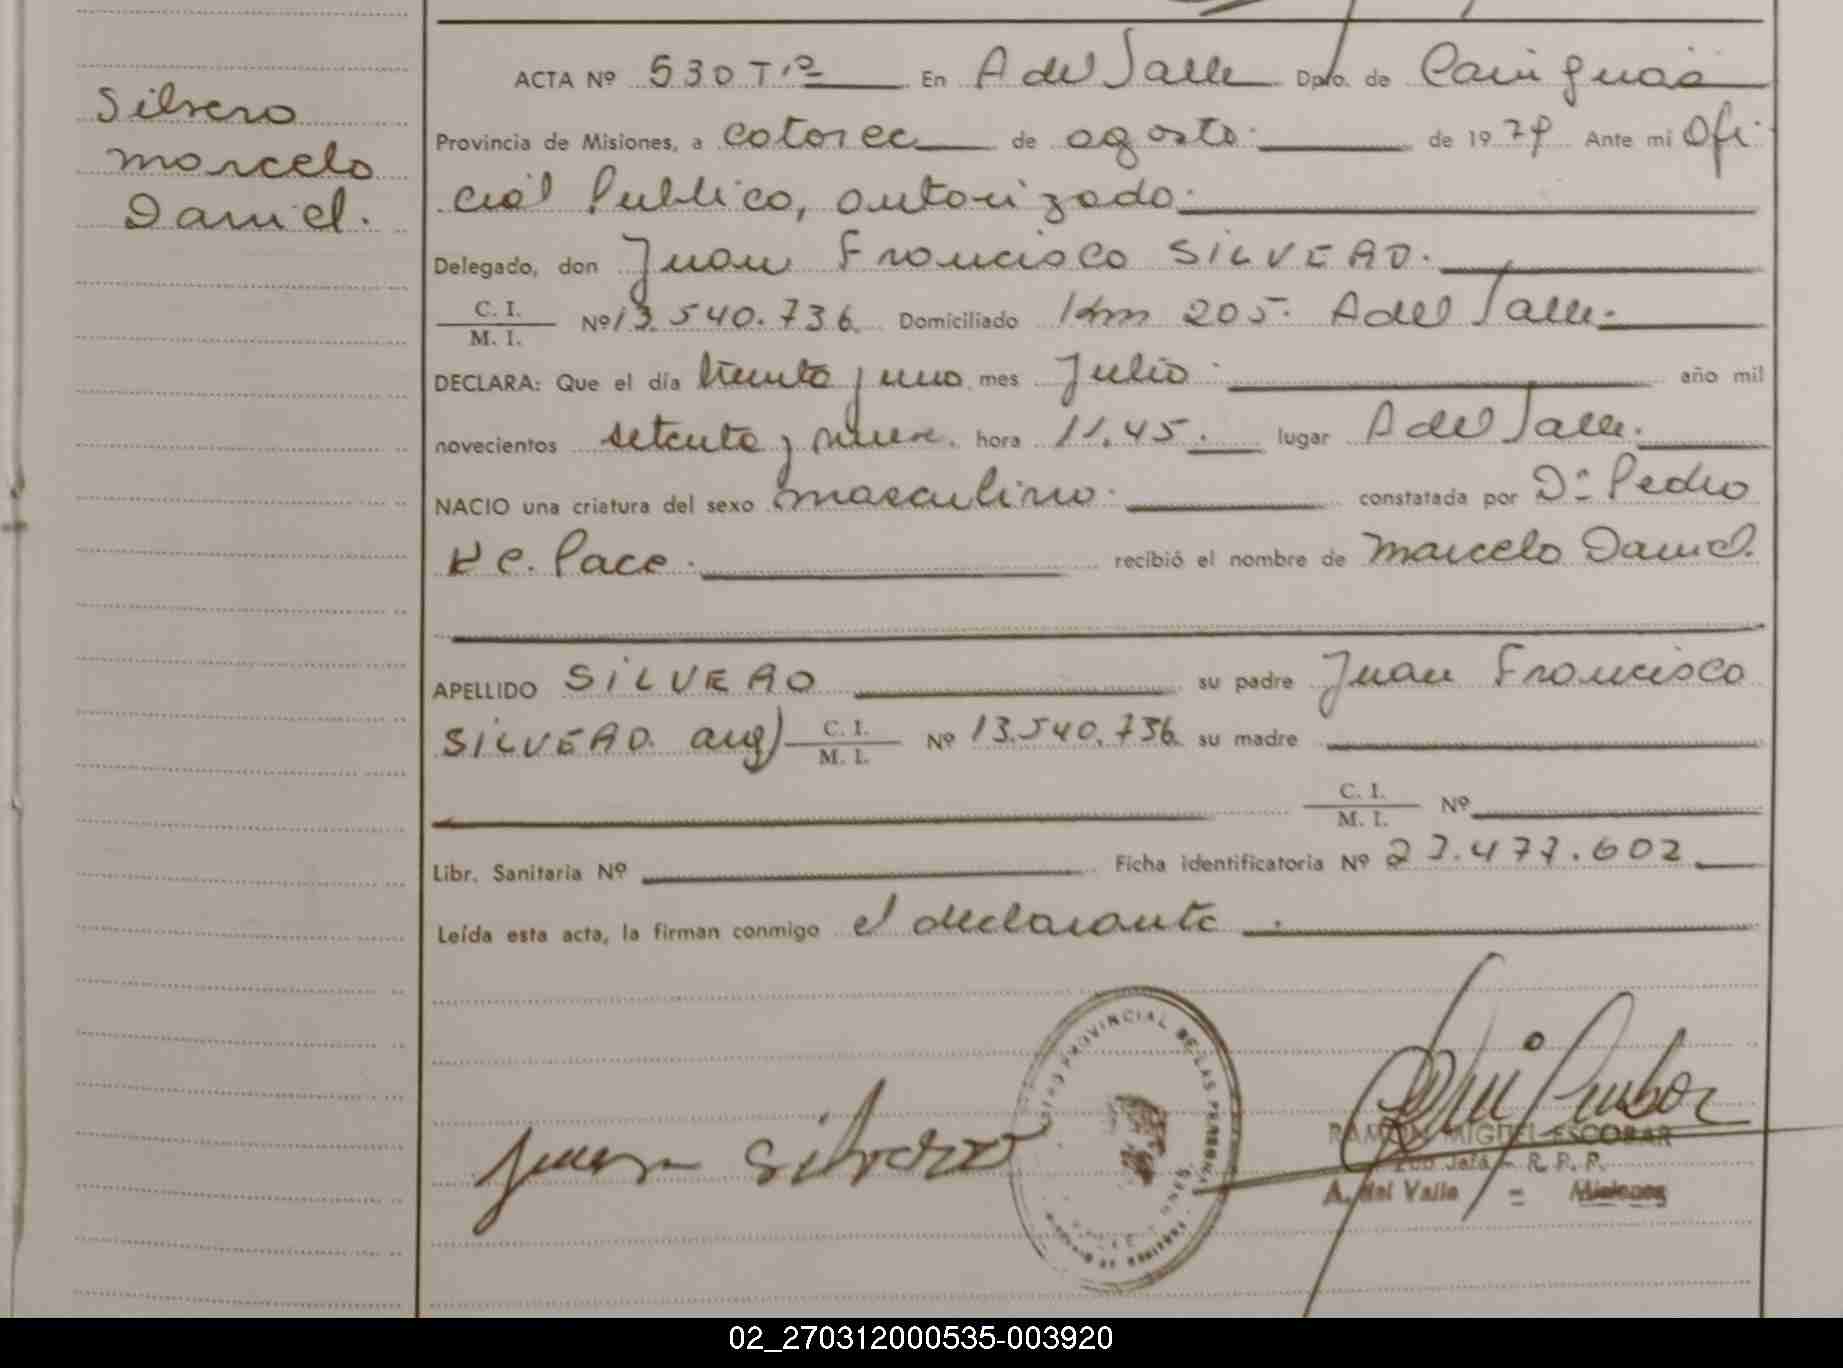 Silvero
Marcelo
Daniel.
ACTA Nº 530 Tº En A del Valle Dpto. de Cainguás
Provincia de Misiones, a catorce de agosto. de 1979 Ante mi Ofi
cial Publico, autorizado.
Delegado, don Juan Francisco SILVERO.
C. I.
M. I. Nº 13.540.736. Domiciliado Km 205. A del Valle.
DECLARA: Que el día treinta y uno mes Julio. año mil
novecientos setenta y nueve. hora 11.45. lugar A del Valle.
NACIO una criatura del sexo masculino. constatada por Dº Pedro
C. Pace. recibió el nombre de Marcelo Daniel.
APELLIDO SILVERO su padre Juan Francisco
SILVERO. arg) C. I.
M. I. Nº 13.540.736. su madre
C. I.
M. I. Nº
Libr. Sanitaria Nº Ficha identificatoria Nº 27.477.602
Leída esta acta, la firman conmigo el declarante.
Juan Silvero
PROVINCIAL DE LAS PERSONAS
RAMON MIGUEL ESCOBAR
Jefe - R. P. P.
A. del Valle = Misiones
02_270312000535-003920